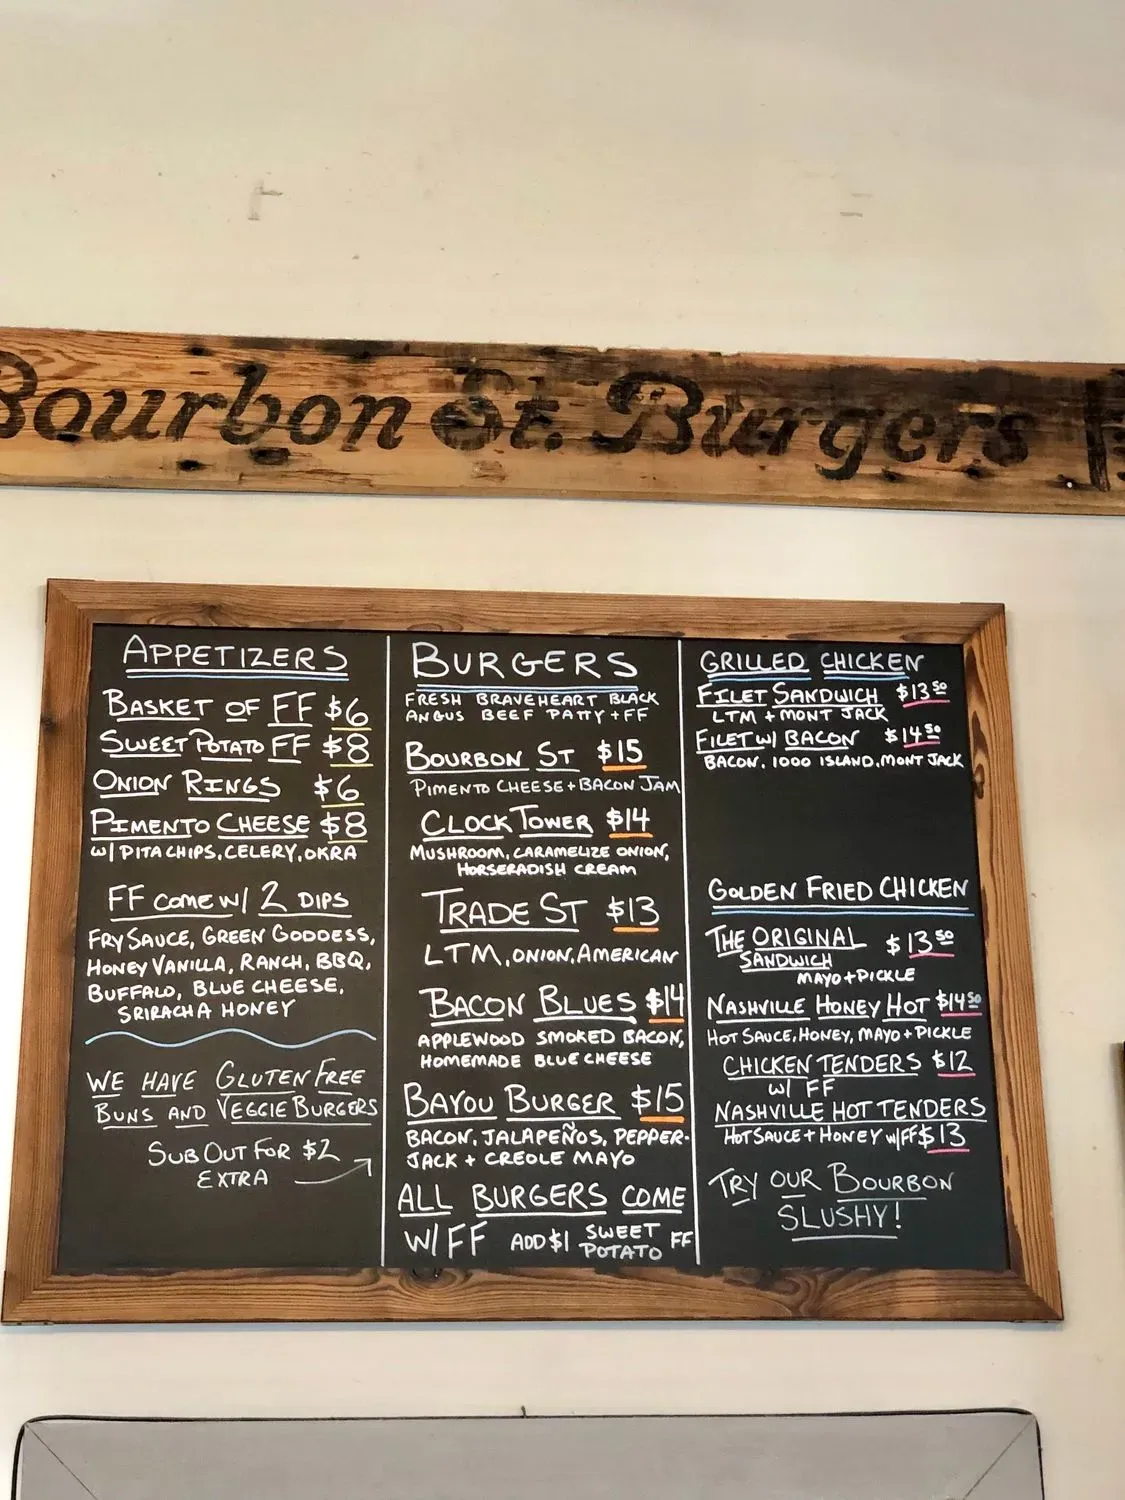 Bourbon St. Burgers
APPETIZERS
BASKET OF FF $6
SWEET POTATO FF $8
ONION RINGS $6
PIMENTO CHEESE $8
W/ PITA CHIPS, CELERY, OKRA
FF COME W/ 2 DIPS
FRY SAUCE, GREEN GODDESS,
HONEY VANILLA, RANCH, BBQ,
BUFFALO, BLUE CHEESE,
SRIRACHA HONEY
WE HAVE GLUTEN FREE
BUNS AND VEGGIE BURGERS
SUB OUT FOR $2
EXTRA
BURGERS
FRESH BRAVEHEART BLACK
ANGUS BEEF PATTY + FF
BOURBON ST $15
PIMENTO CHEESE + BACON JAM
CLOCK TOWER $14
MUSHROOM, CARAMELIZE ONION,
HORSERADISH CREAM
TRADE ST $13
LTM, ONION, AMERICAN
BACON BLUES $14
APPLEWOOD SMOKED BACON,
HOMEMADE BLUE CHEESE
BAYOU BURGER $15
BACON, JALAPEÑOS, PEPPER-
JACK + CREOLE MAYO
ALL BURGERS COME
W/ FF ADD $1 SWEET POTATO FF
GRILLED CHICKEN
FILET SANDWICH $13.50
LTM + MONT JACK
FILET W/ BACON $14.50
BACON, 1000 ISLAND, MONT JACK
GOLDEN FRIED CHICKEN
THE ORIGINAL $13.50
SANDWICH
MAYO + PICKLE
NASHVILLE HONEY HOT $14.50
HOT SAUCE, HONEY, MAYO + PICKLE
CHICKEN TENDERS $12
W/ FF
NASHVILLE HOT TENDERS
HOT SAUCE + HONEY W/FF $13
TRY OUR BOURBON
SLUSHY!